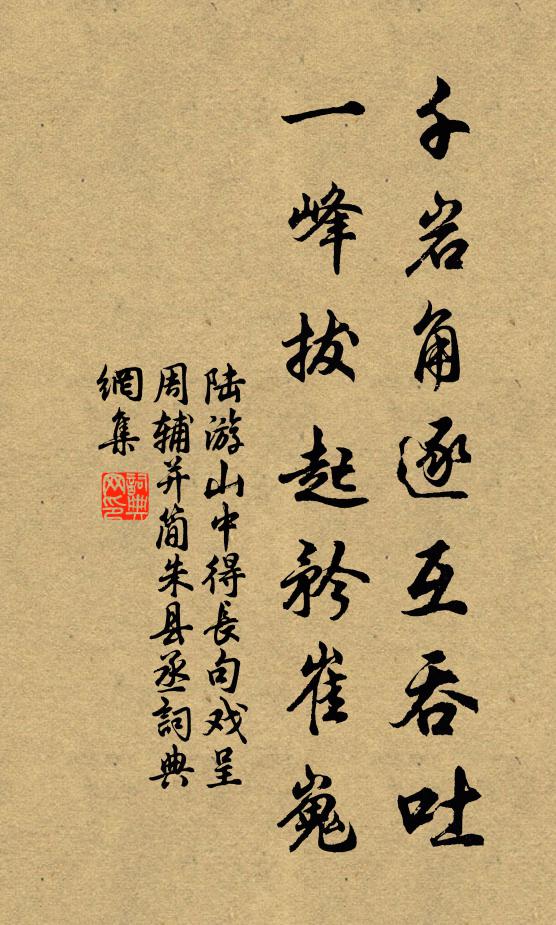 千岩角逐互吞吐
一峰拔起矜崔嵬
陆游山中得長句戏呈
周辅并简朱县丞詞典
網集
詞典
网印